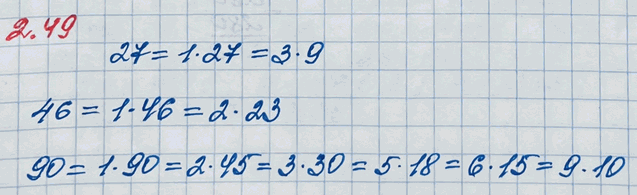 2.49
27 = 1·27 = 3·9
46 = 1·46 = 2·23
90 = 1·90 = 2·45 = 3·30 = 5·18 = 6·15 = 9·10